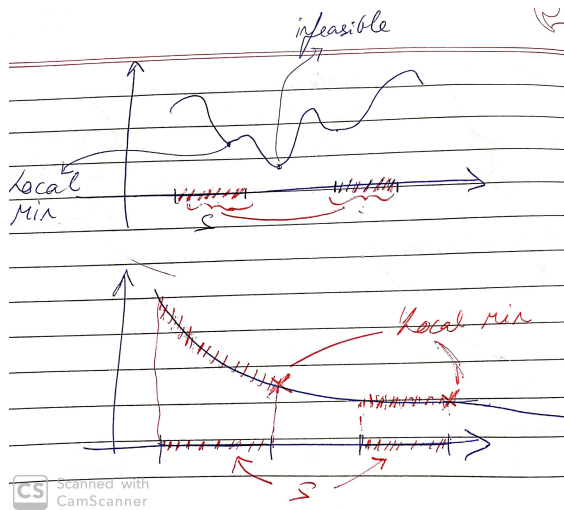 infeasible
Local
Min
S
Local Min
S
CS Scanned with
CamScanner